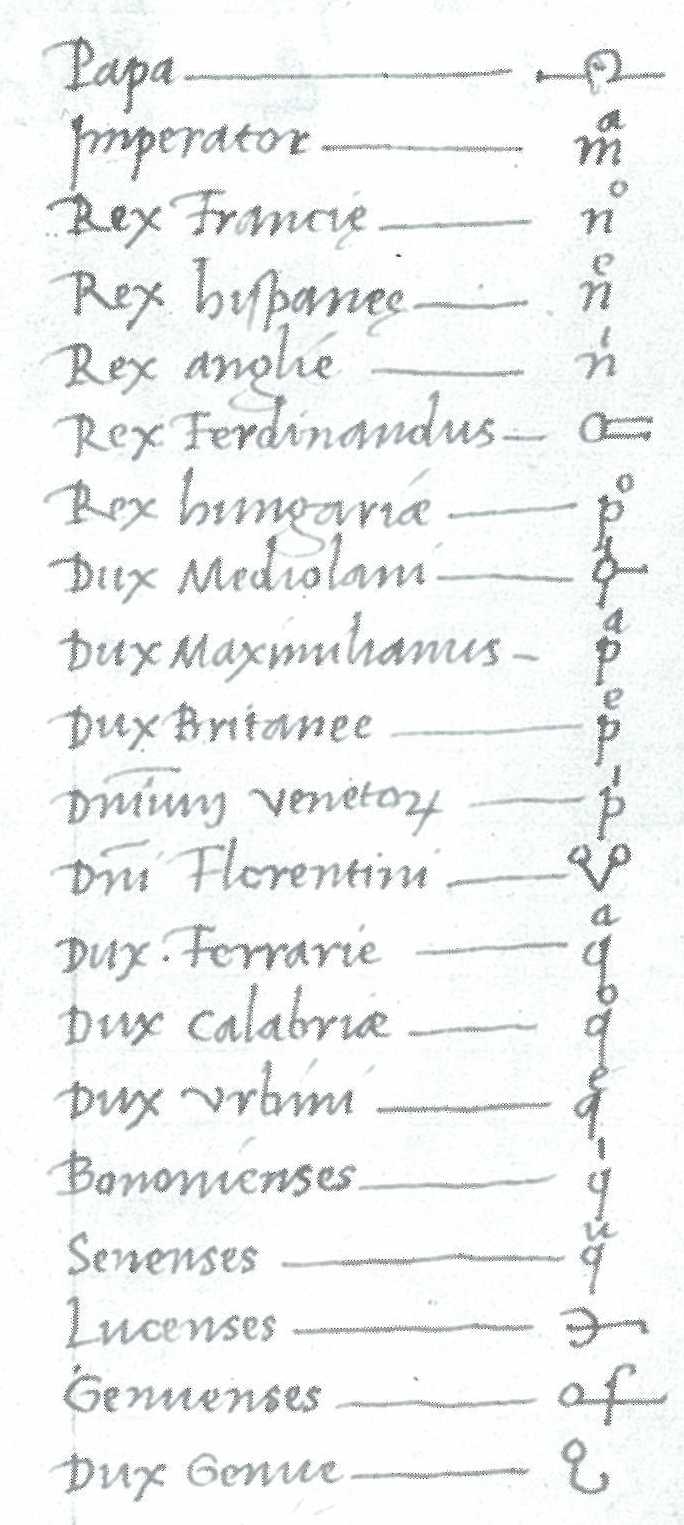 Papa
Imperator — mᵃ
Rex Francię — nᵒ
Rex hispanee — nᵉ
Rex anglię — nⁱ
Rex Ferdinandus
Rex hungariæ — pᵒ
Dux Mediolani
Dux Maximilianus — pᵃ
Dux Britanee — pᵉ
Dn̄iuɱ venetoꝝ — pⁱ
Dn̄i Florentini
Dux · Ferrarie — qᵃ
Dux Calabriæ — qᵒ
Dux vrbini — qᵉ
Bononienses — qⁱ
Senenses — qᵘ
Lucenses
Genuenses
Dux Genue